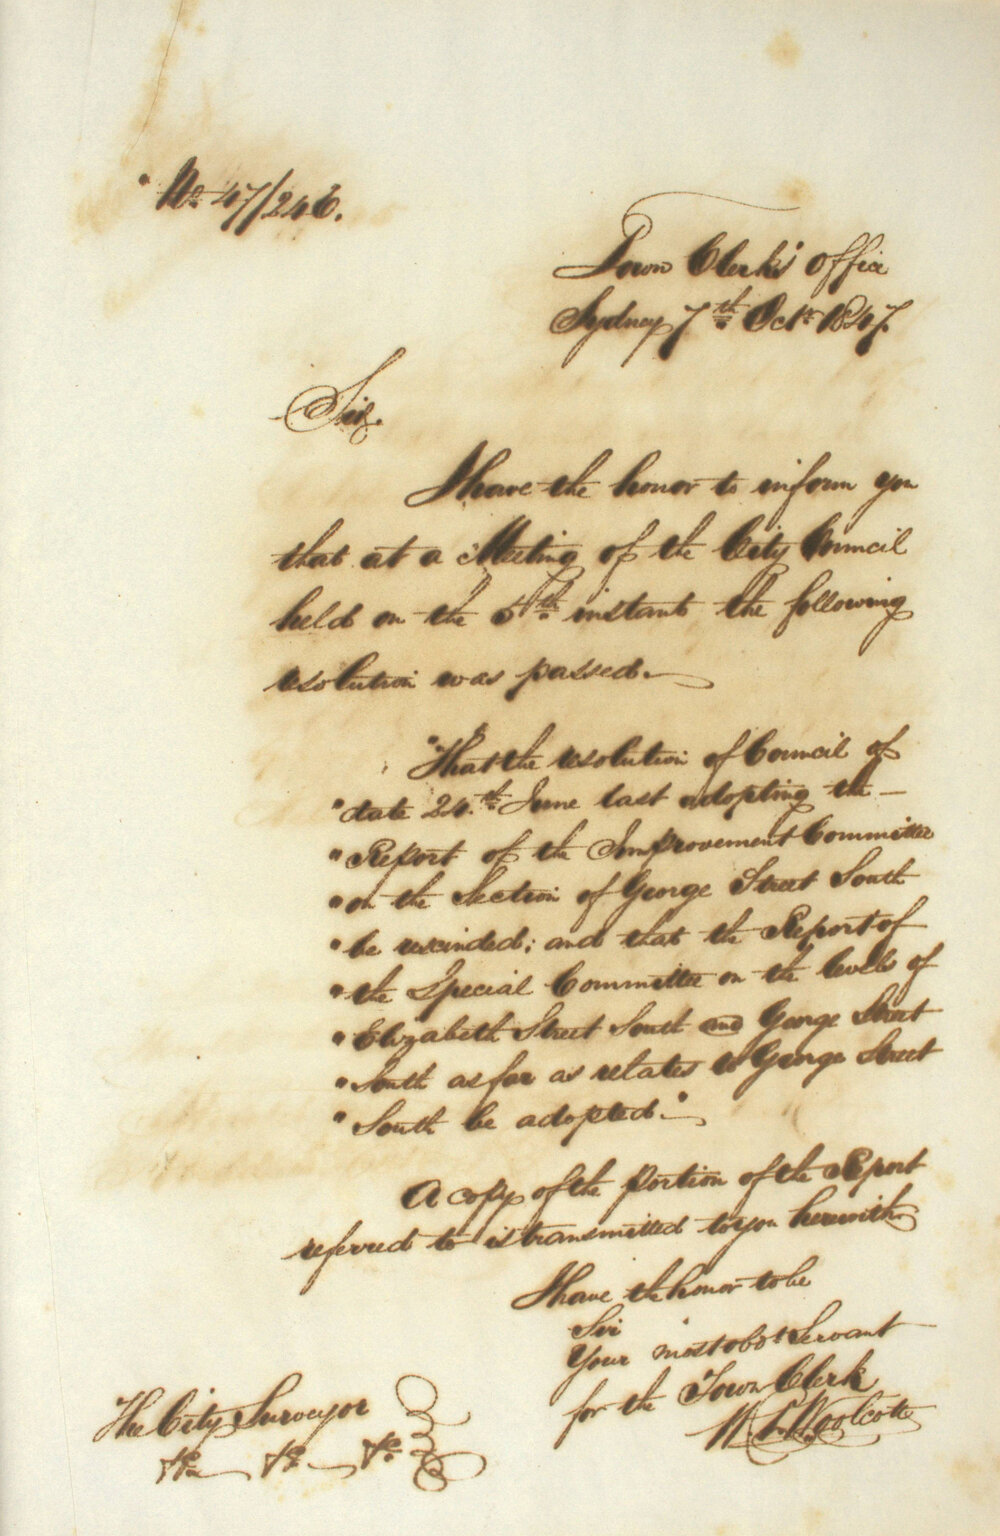 No. 47/246.
Town Clerk's Office
Sydney 7th Octr. 1847.
Sir,
I have the honor to inform you
that at a Meeting of the City Council
held on the 5th. instant the following
resolution was passed.
"That the resolution of Council of
"date 24.th June last adopting the —
"Report of the Improvement Committee
"on the Section of George Street South
"be rescinded; and that the Report of
"the Special Committee on the levels of
"Elizabeth Street South and George Street
"South as far as relates to George Street
"South be adopted."
A copy of the portion of the Report
referred to is transmitted to you herewith
I have the honor to be
Sir
Your most obt. Servant
for the Town Clerk
The City Surveyor
W. Woolcott
&c. &c. &c.